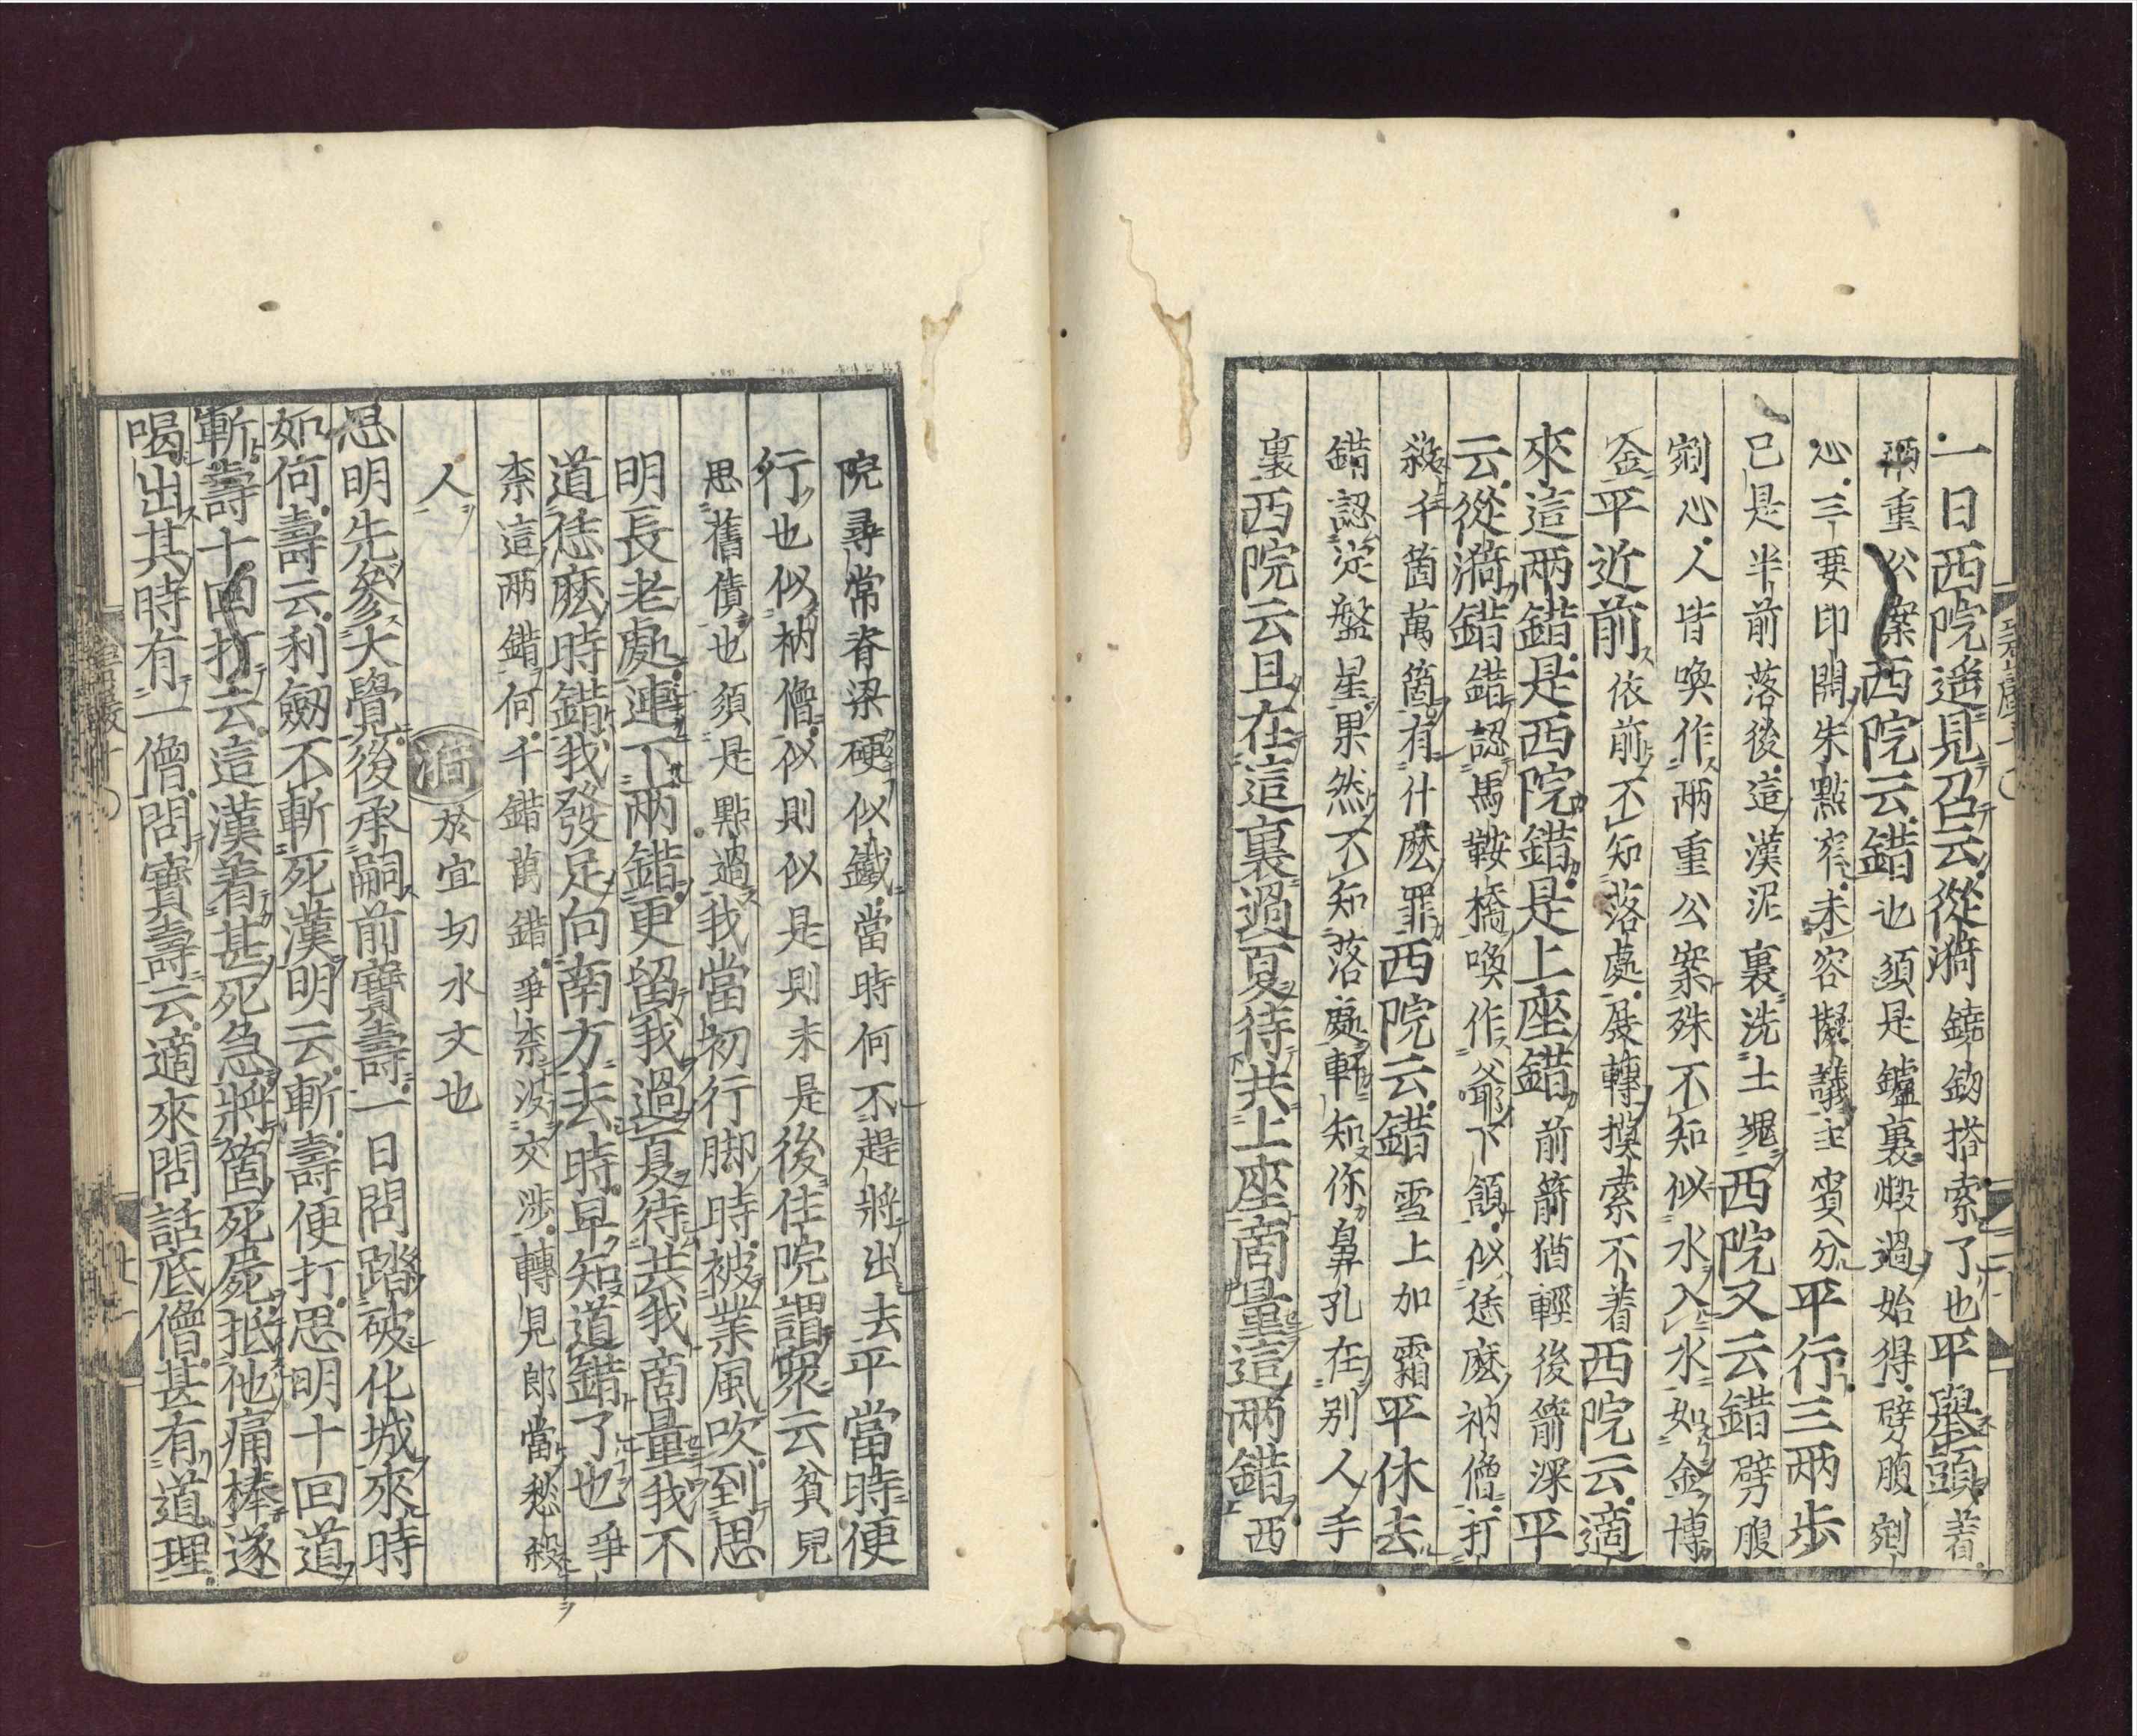 一日西院遥見召云從漪鐃鈎搭索了也平舉頭着
兩重公案西院云錯也須是鑪裏煅過始得劈腹剜
心三要印開朱點窄未容擬議主賓分平行三兩步
已是半前落後這漢泥裏洗土塊西院又云錯劈腹
剜心人皆喚作兩重公案殊不知似水入水如金博
金平近前依前不知落處展轉摸索不着西院云適
來這兩錯是西院錯是上座錯前箭猶輕後箭深平
云從漪錯錯認馬鞍橋喚作爺下頷似恁麽衲僧打
殺千箇萬箇有什麽罪西院云錯雪上加霜平休去
錯認定盤星果然不知落處軒知你鼻孔在別人手
裏西院云且在這裏過夏待共上座商量這兩錯西
院尋常脊梁硬似鐵當時何不趕將出去平當時便
行也似衲僧似則似是則未是後住院謂衆云貧兒
思舊債也須是點過我當初行脚時被業風吹到思
明長老處連下兩錯更留我過夏待共我商量我不
道恁麽時錯我發足向南方去時早知道錯了也爭
柰這兩錯何千錯萬錯爭柰没交渉轉見郎當愁殺
人
漪於宜切水文也
思明先參大覺後承嗣前寶壽一日問踏破化城來時
如何壽云利劒不斬死漢明云斬壽便打思明十回道
斬壽十回打云這漢着甚死急將箇死屍抵他痛棒遂
喝出其時有一僧問寶壽云適來問話底僧甚有道理